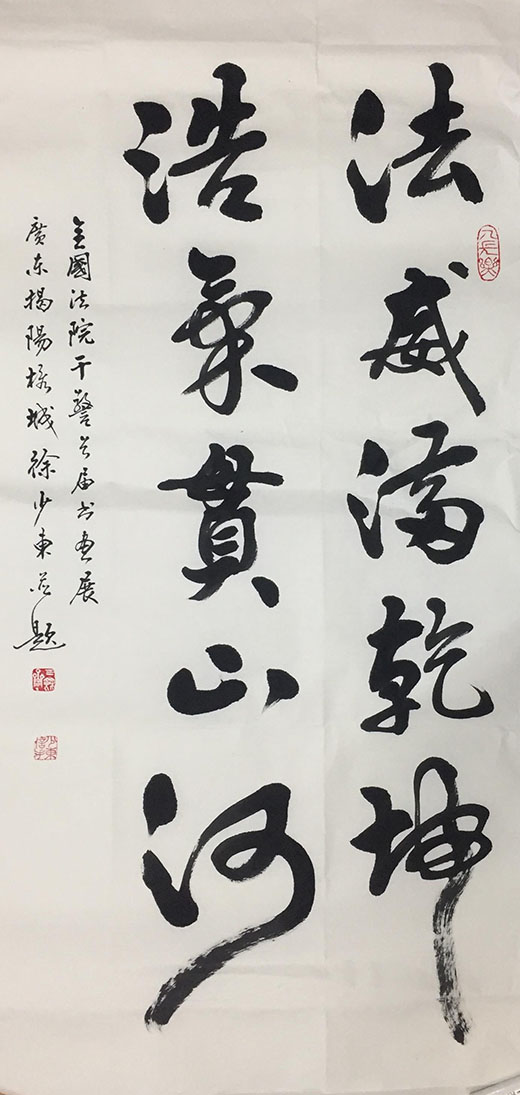 法威满乾坤
浩氣貫山河
全國法院干警首届书画展
廣东揭陽榕城徐少東并題